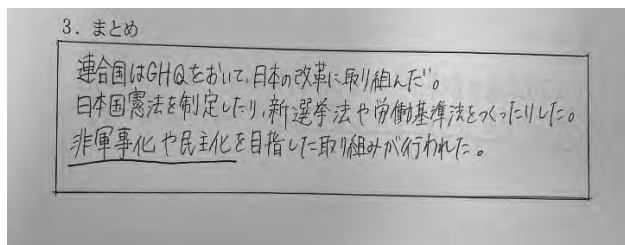 3. まとめ
連合国はGHQをおいて、日本の改革に取り組んだ。
日本国憲法を制定したり、新選挙法や労働基準法をつくったりした。
非軍事化や民主化を目指した取り組みが行われた。